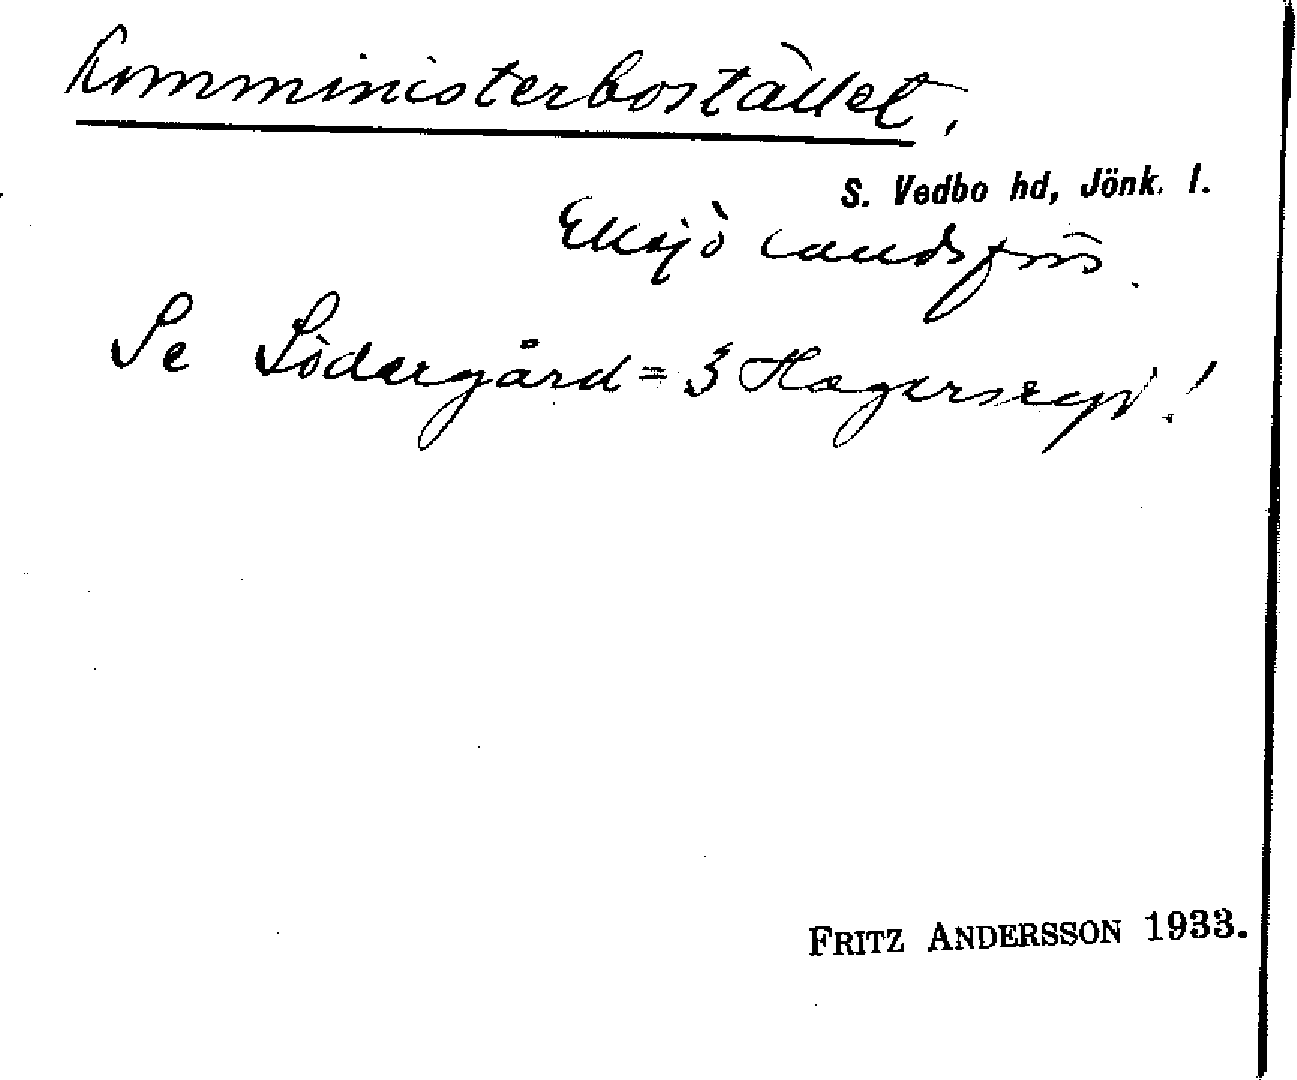 Komministerbostället.
S. Vedbo hd, Jönk. l.
Eksjö landsförs.
Se Södergård = 3 Hagersryd!
FRITZ ANDERSSON 1933.